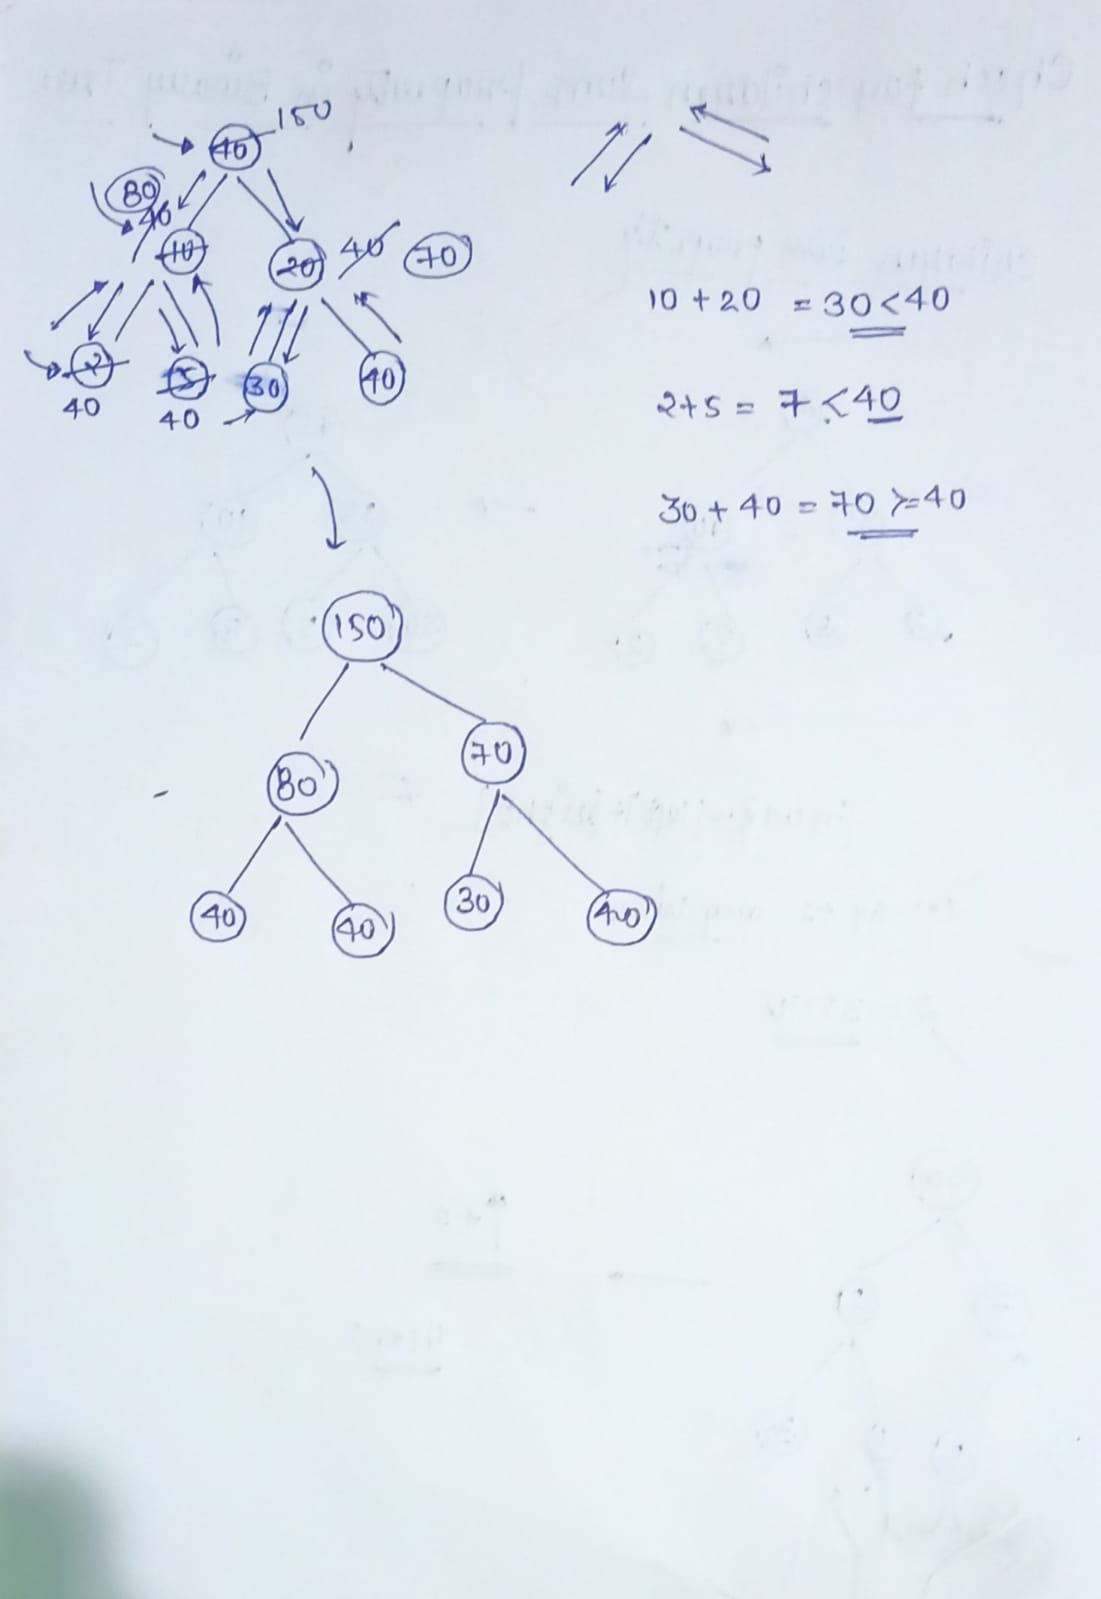 40 150
80
40
10
20 40 70
2 5 30 40
40 40
10 + 20 = 30 < 40
2+5 = 7 < 40
30 + 40 = 70 >= 40
150
80 70
40 40 30 40